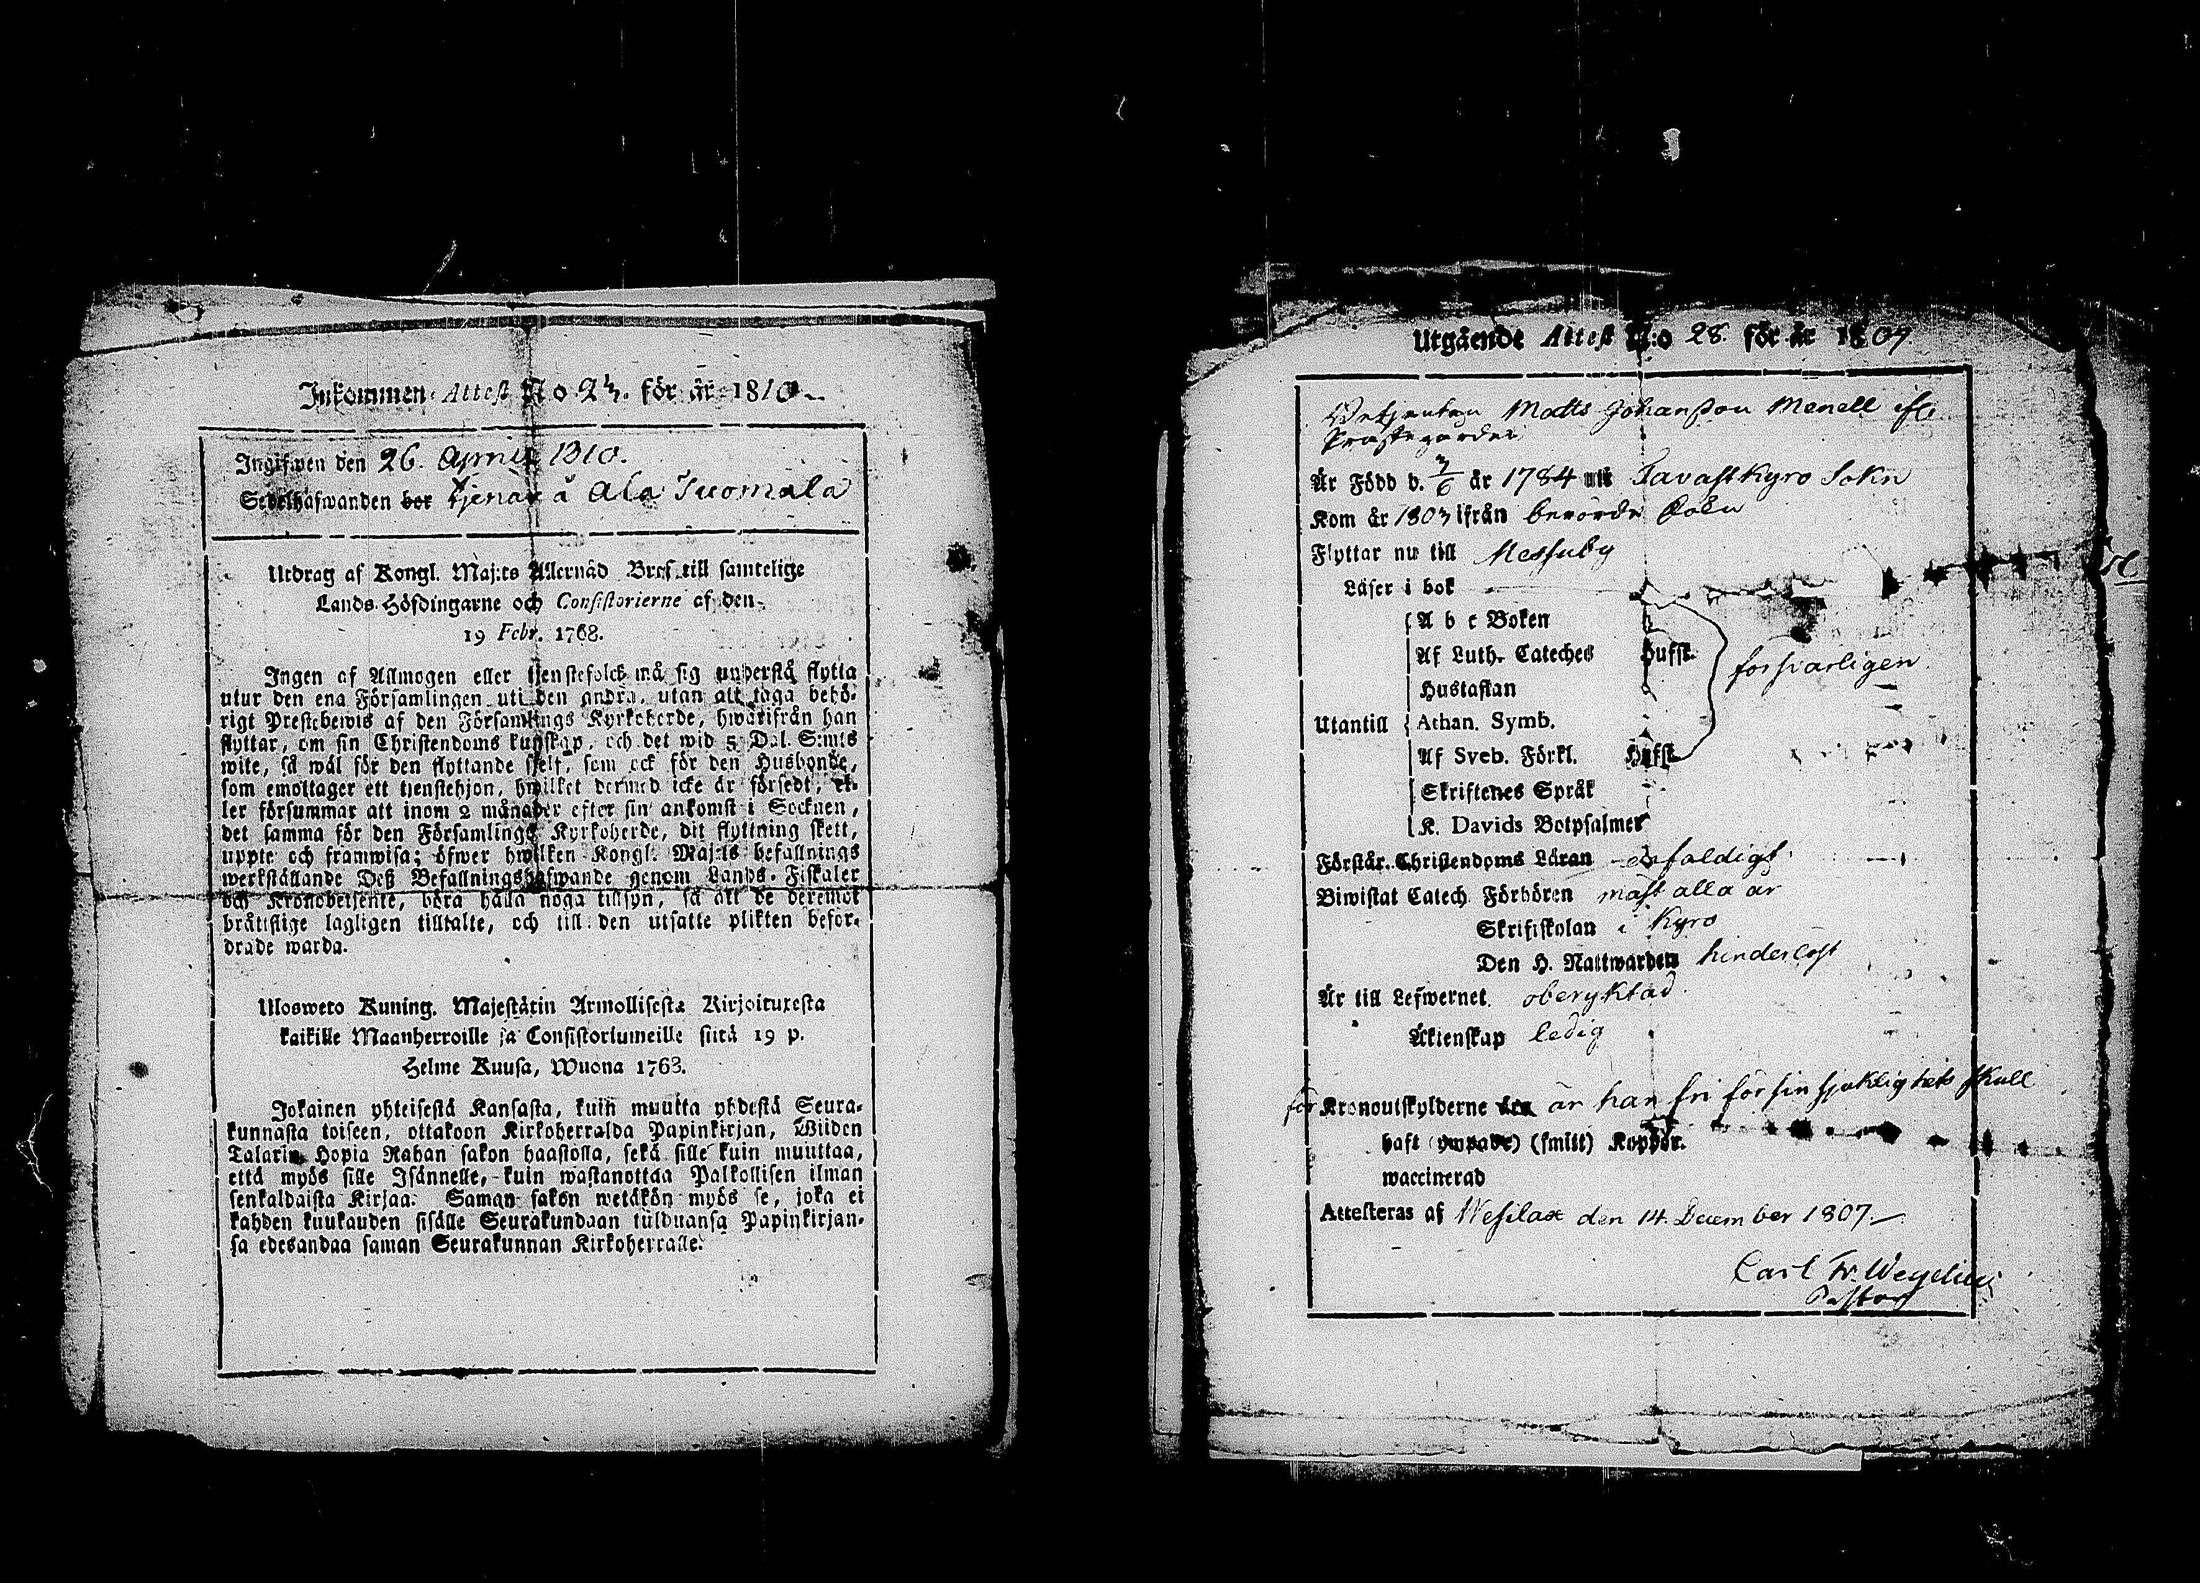 Inkommen Attest No 23. för år 1810.
Ingifwen den 26. April 1810.
Sedelhafwanden bor tjenar å Ala Tuomala
Utdrag af Kongl. Maj:ts Allernåd Bref till samtelige
Lands-Höfdingarne och Consistorierne af den
19 Febr. 1768.
Ingen af Allmogen eller tjenstefolck må sig understå flytta
utur den ena Församlingen uti den andra, utan att taga behö-
rigt Prestebewis af den Församlings Kyrkoherde, hwarifrån han
flyttar, om sin Christendoms kunskap, och det wid 5 Dal. S:mts
wite, så wäl för den flyttande sjelf, som ock för den Husbonde,
som emottager ett tjenstehjon, hwilket dermed icke är försedt, el-
ler försummar att inom 2 månader efter sin ankomst i Socknen,
det samma för den Församlings Kyrkoherde, dit flyttning skett,
uppte och framwisa; öfwer hwilken Kongl. Maj:ts befallnings
werkställande Deß Befallningshafwande genom Lands-Fiskaler
och Kronobetjente, böra hålla noga tillsyn, så att de deremot
bråttslige lagligen tilltalte, och till den utsatte plikten befor-
drade warda.
Uloswето Kuning. Majestätin Armollisesta Kirjoituxesta
kaikille Maanherroille ja Consistoriumeille siitä 19 p.
Helme Kuusa, Wuona 1768.
Jokainen yhteisestä Kansasta, kuin muutta yhdestä Seura-
kunnasta toiseen, ottakoon Kirkoherralda Papinkirjan, Wiiden
Talarin Hopia Rahan sakon haastolla, sekä sille kuin muuttaa,
että myös sille Isännelle, kuin wastanottaa Palkollisen ilman
senkaldaista Kirjaa. Saman sakon wetäkön myös se, joka ei
kahden kuukauden sisälle Seurakundaan tulduansa Papinkirjan-
sa edesandaa saman Seurakunnan Kirkoherralle.
Utgående Attest N:o 28. för år 1807.
Matts Johansson Menell ifr.
Prästegården
Är Född d. 3/6 år 1784 uti Tavastkyro Sokn
Kom år 1803 ifrån berörde Sokn
Flyttar nu till Messuby
Läser i bok
A b c Boken
Af Luth. Cateches Hufst.
Hustaflan
försvarligen
Utantill Athan. Symb.
Af Sveb. Förkl. Hufst.
Skriftenes Språk
K. Davids Botpsalmer
Förstår Christendoms Läran enfaldigt
Biwistat Catech. Förhören mäst alla år
Skriftskolan i Kyro
Den H. Nattwarden hinderlöst
Är till Lefwernet oberyktad
Äktenskap ledig
för Kronoutskylderne är han fri för sin sjuklighets skull
haft (ympade) (smitt) Koppor.
waccinerad
Attesteras af Wesilax den 14 December 1807.
Carl Fr. Wegelius
Pastor